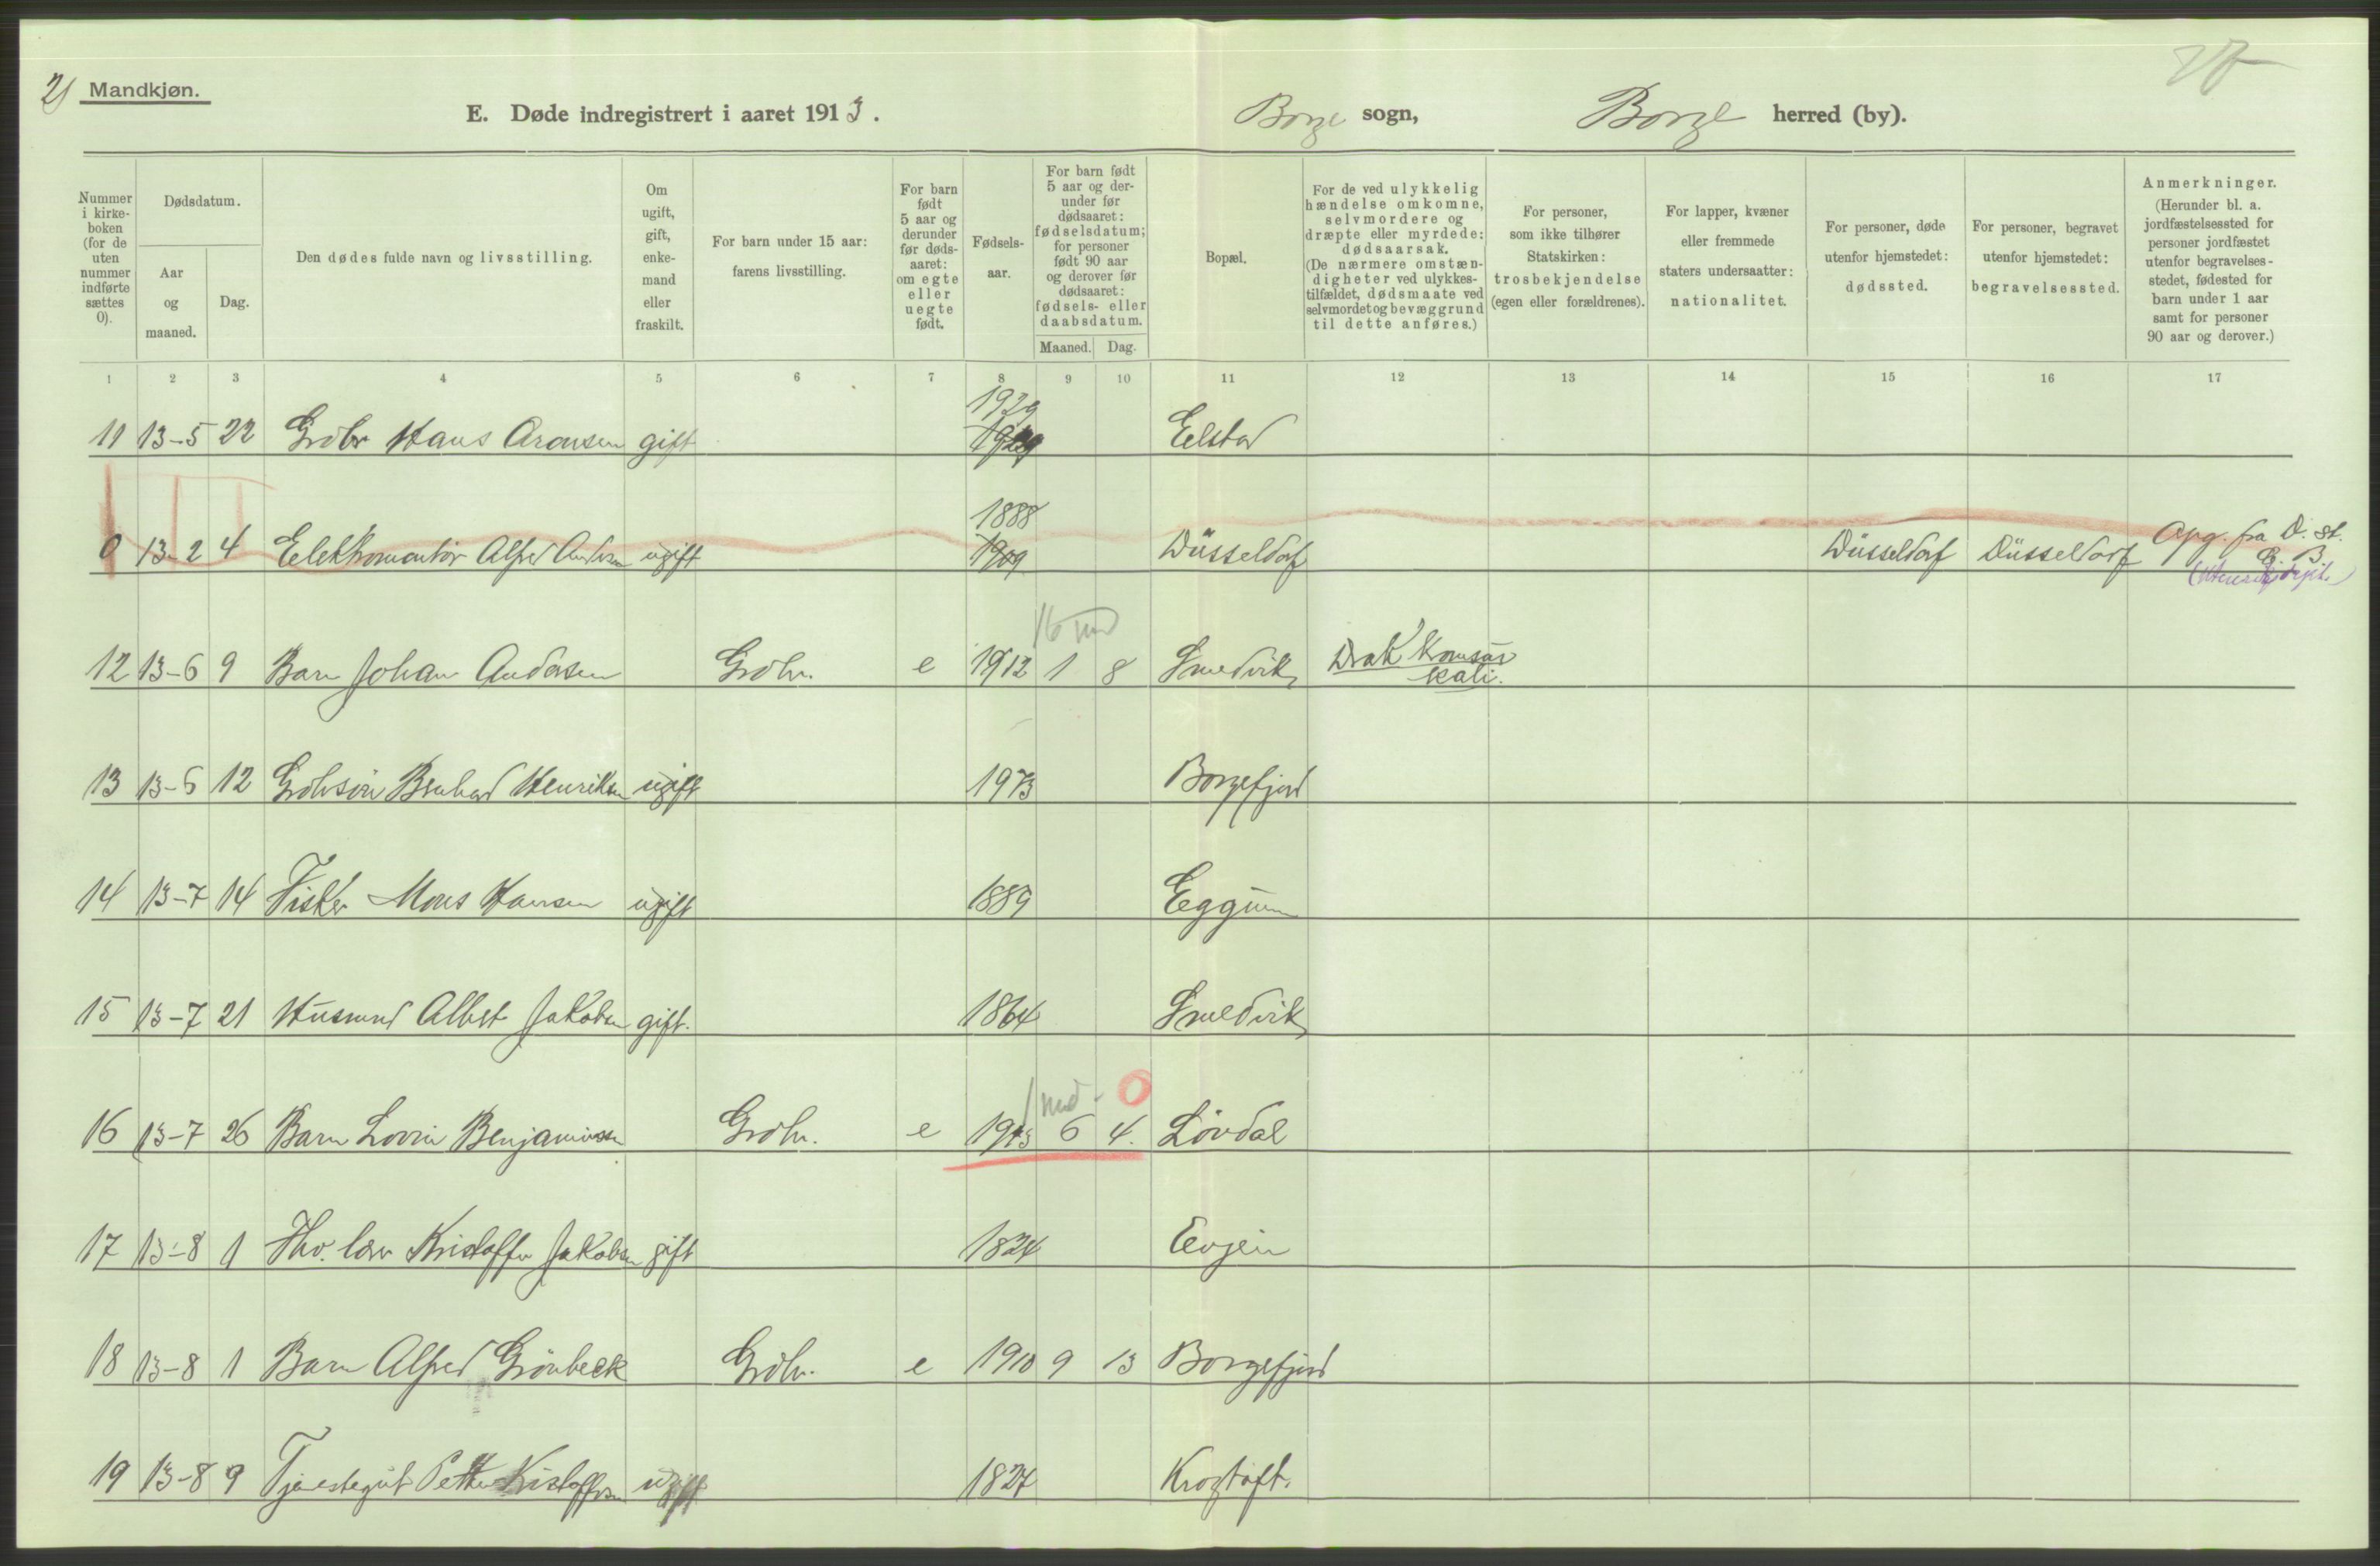 2) Mandkjøn.
E. Døde indregistrert i aaret 1913. Borge sogn, Borge herred (by).
Nummer i kirke-boken (for de uten nummer indførte sættes 0).
Dødsdatum.
Aar og maaned.
Dag.
Den dødes fulde navn og livsstilling.
Om ugift, gift, enke-mand eller fraskilt.
For barn under 15 aar: farens livsstilling.
For barn født 5 aar og derunder før døds-aaret: om egte eller uegte født.
Fødsels-aar.
For barn født 5 aar og der-under før dødsaaret: fødselsdatum; for personer født 90 aar og derover før dødsaaret: fødsels- eller daabsdatum.
Maaned. Dag.
Bopæl.
For de ved ulykkelig hændelse omkomne, selvmordere og dræpte eller myrdede: dødsaarsak. (De nærmere omstæn-digheter ved ulykkes-tilfældet, dødsmaate ved selvmordet og bevæggrund til dette anføres.)
For personer, som ikke tilhører Statskirken: trosbekjendelse (egen eller forældrenes).
For lapper, kvæner eller fremmede staters undersaatter: nationalitet.
For personer, døde utenfor hjemstedet: dødssted.
For personer, begravet utenfor hjemstedet: begravelsessted.
Anmerkninger. (Herunder bl. a. jordfæstelsessted for personer jordfæstet utenfor begravelses-stedet, fødested for barn under 1 aar samt for personer 90 aar og derover.)
1 2 3 4 5 6 7 8 9 10 11 12 13 14 15 16 17
1929
11 13-5 22 Grdbr Hans Aronsen gift Eelstad
1888
0 13-2 4 Elektromontör Alfred Andersen ugift 1909 Düsseldorf Düsseldorf Düsseldorf Opg. fra D. st.
C. B.
16 md
12 13-6 9 Barn Johan Andersen Grdbr. e 1912 1 8 Smedvik Drak
kali.
13 13-6 12 Grdbrsön Bernhard Henriksen ugift 1973 Borgefjord
14 13-7 14 Fisker Mons Hansen ugift 1889 Eggum
15 13-7 21 Husmand Albert Jakobsen gift. 1864 Smedvik
1 md - 0
16 13-7 26 Barn Benjaminsen Grdbr. e 1913 6 4. Lövdal
17 13-8 1 Kristoffer Jakobsen gift 1824 Evjen
18 13-8 1 Barn Alfred Grönbeck Grdbr. e 1910 9 13 Borgefjord
19 13-8 9 Tjenestegut Petter Kristoffersen ugift 1827 Krogtoft.